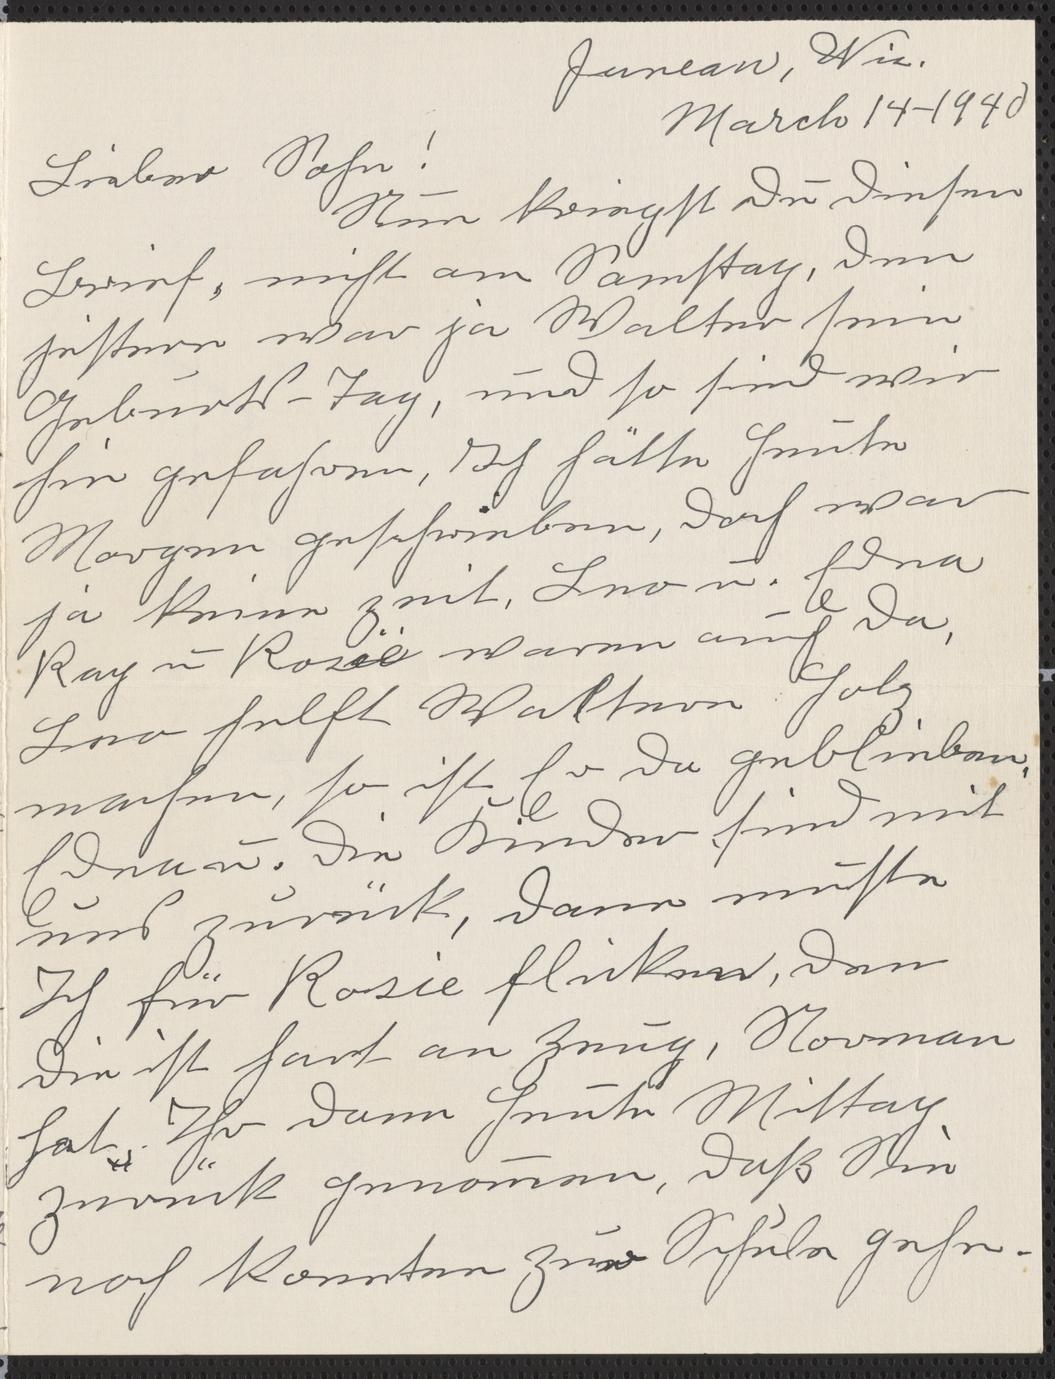 Juneau, Wis.
March 14-1940
Lieber Sohn!
Nun kriegst Du diesen
Brief, nicht am Samstag, den
jestern war ja Walter sein
Geburts-Tag, und so sind wir
hin gefahren, Ich hätte heute
Morgen geschrieben, doch war
ja keine zeit, Leo u. Edna
Ray u Rosie waren auch da,
Leo helft Waltern Holz
machen, so ist Er da geblieben,
Edna u. die Kinder sind mit
uns zurück, dann muste
Ich für Rosie flicken, den
die ist hart an Zeug, Norman
hat Ihr dann heute Mittag
zurück genom̄en, daß Sie
noch konnten zur Schule gehe-